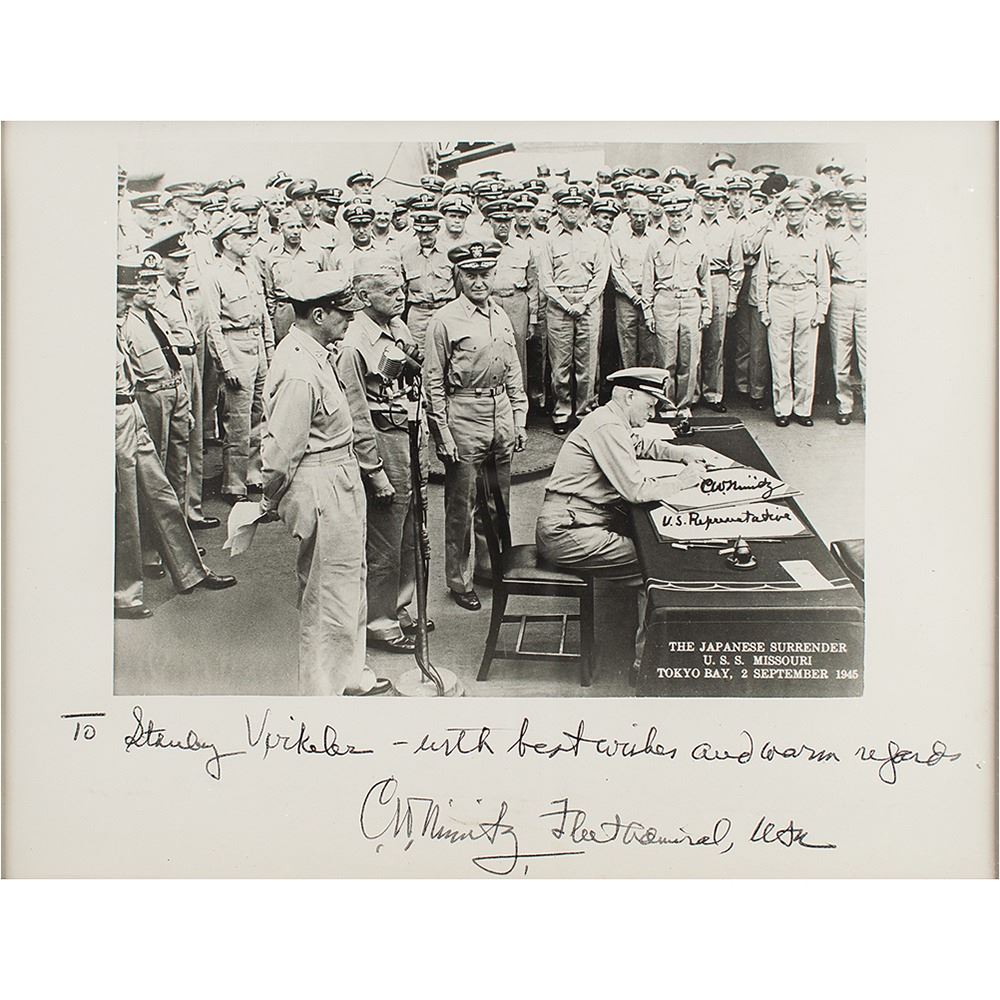 C.W. Nimitz
U.S. Representative
THE JAPANESE SURRENDER
U. S. S. MISSOURI
TOKYO BAY, 2 SEPTEMBER 1945
To Stanley - with best wishes and warm regards.
C.W. Nimitz Fleet Admiral, USN